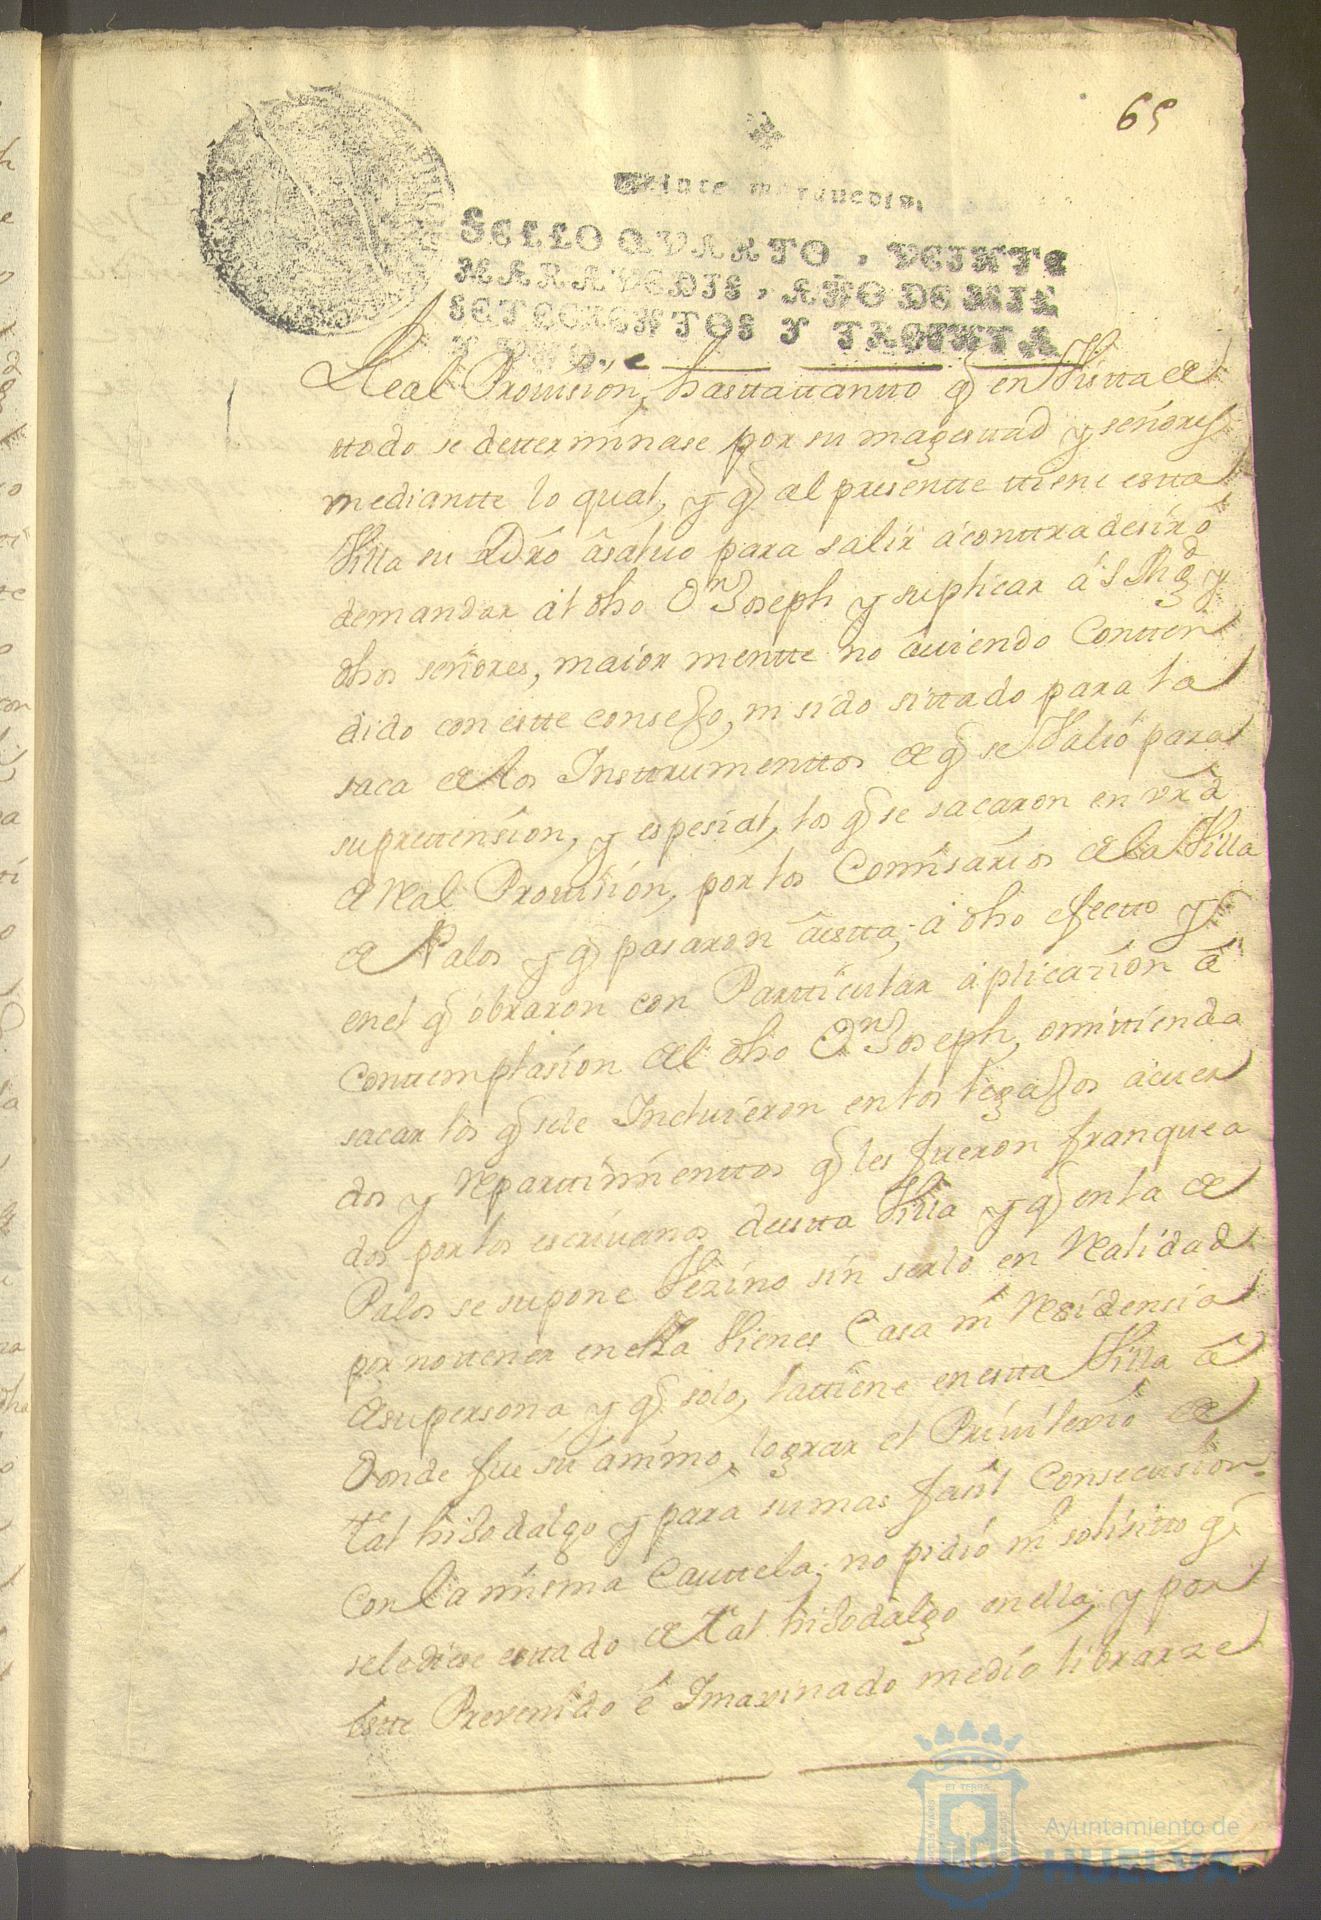 65
Veinte maravedis.
SELLO QVARTO, VEINTE
MARAVEDIS, AÑO DE MIL
SETECIENTOS Y TREINTA
Y VNO.
Real Prouision, hastatantto q̃ en Vistta de
ttodo se detterminase por su magesttad y señores
mediantte lo qual, y q̃ al presentte ttiene estta
Villa su dr̃o âsaluo para salir á conttradesir ó
demandar al dho Dn Joseph y suplicar á S Mgd y
dhos señores, maior mentte no auiendo Contten
dido con estte consejo, ni sido sittado para la
saca de los Insttrumenttos de q̃ se Valió para
suprettension, y espesial, los q̃ se sacaron en vr̃d
de Real Prouision, por los Comisarios de la Villa
de Palos y q̃ pasaron âestta, á dho efectto y
enel q̃ obraron con Partticular áplicazion â
Conttemplasion del dho Dn Joseph, omittiendo
sacar los q̃ sele Incluieron en los legajos ácuer
dos y Reparttimienttos q̃ les fueron franquea
dos por los escriuanos de estta Villa y q̃ en la de
Palos se supone Vezino sin serlo en Realidad
por no ttener en ella Vienes Casa ni Residensia
de su persona y q̃ solo, la ttiene en estta Villa â
Donde fue su ánimo, lograr el Priuilexio de
ttal hijodalgo y para su mas fasil Consecusion
Con la misma Cauttela; no pidió ni solisitto q̃
sele diese esttado de ttal hijodalgo en ella, y por
estte Prevenido é Imaxinado medio librarze
ET TERRA
Ayuntamiento de
HUELVA